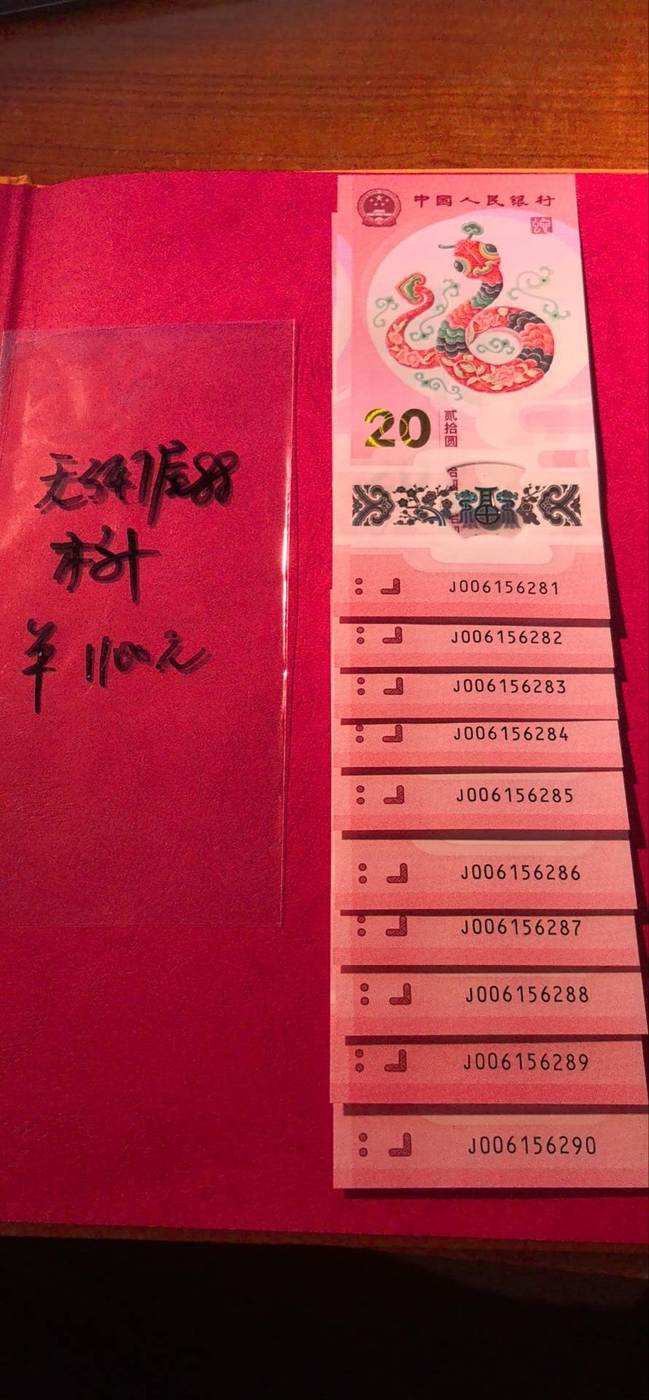 中国人民银行
20 贰拾圆
福
无347尾88
标十
¥ 1100元
J006156281
J006156282
J006156283
J006156284
J006156285
J006156286
J006156287
J006156288
J006156289
J006156290